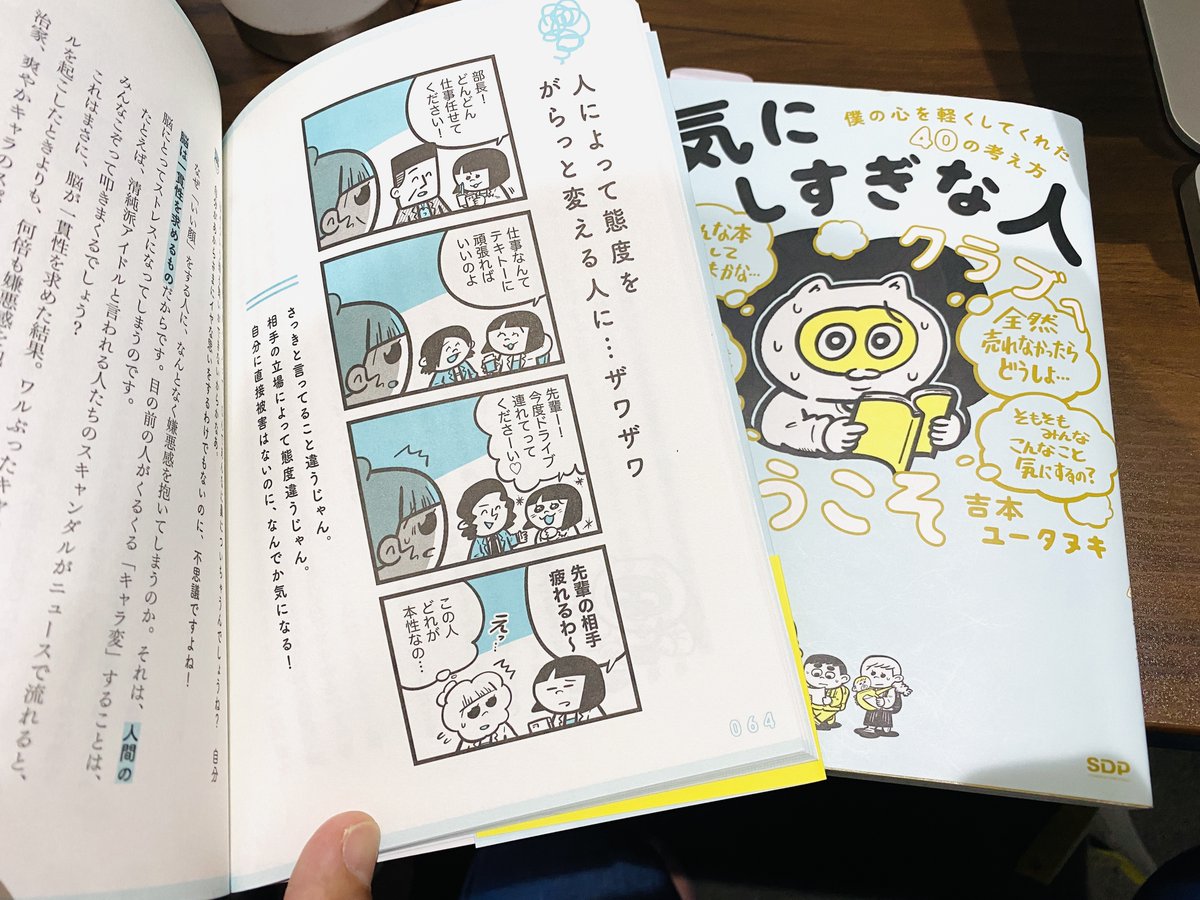 人によって態度を
がらっと変える人に…ザワザワ
部長!
どんどん
仕事任せて
ください!
仕事なんて
テキトーに
頑張れば
いいのよ
先輩ー!
今度ドライブ
連れてって
くださーい♡
先輩の相手
疲れるわ〜
えっ…
この人
どれが
本性なの…
さっきと言ってること違うじゃん。
相手の立場によって態度違うじゃん。
自分に直接被害はないのに、なんでか気になる!
064
不思議ですよね! 自分
なぜ「いい顔」をする人に、なんとなく嫌悪感を抱いてしまうのか。それは、人間の
脳は一貫性を求めるものだからです。目の前の人がくるくる「キャラ変」することは、
脳にとってストレスになってしまうのです。
たとえば、清純派アイドルと言われる人たちのスキャンダルがニュースで流れると、
みんなこぞって叩きまくるでしょう?
これはまさに、脳が一貫性を求めた結果。ワルぶったキャ
ルを起こしたときよりも、何倍も嫌悪感を
治家、爽やかキャラのスポ
僕の心を軽くしてくれた
40の考え方
気に
しすぎな人
クラブへ
うこそ
んな本
して
全然
売れなかったら
どうしよ…
そもそも
みんな
こんなこと
気にするの?
吉本
ユータヌキ
SDP